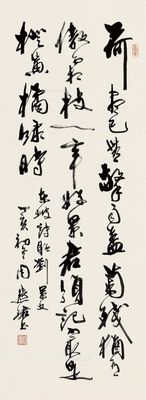 荷盡已無擎雨蓋菊殘猶有
傲霜枝一年好景君須記最是
橙黃橘綠時
東坡詩贈劉景文